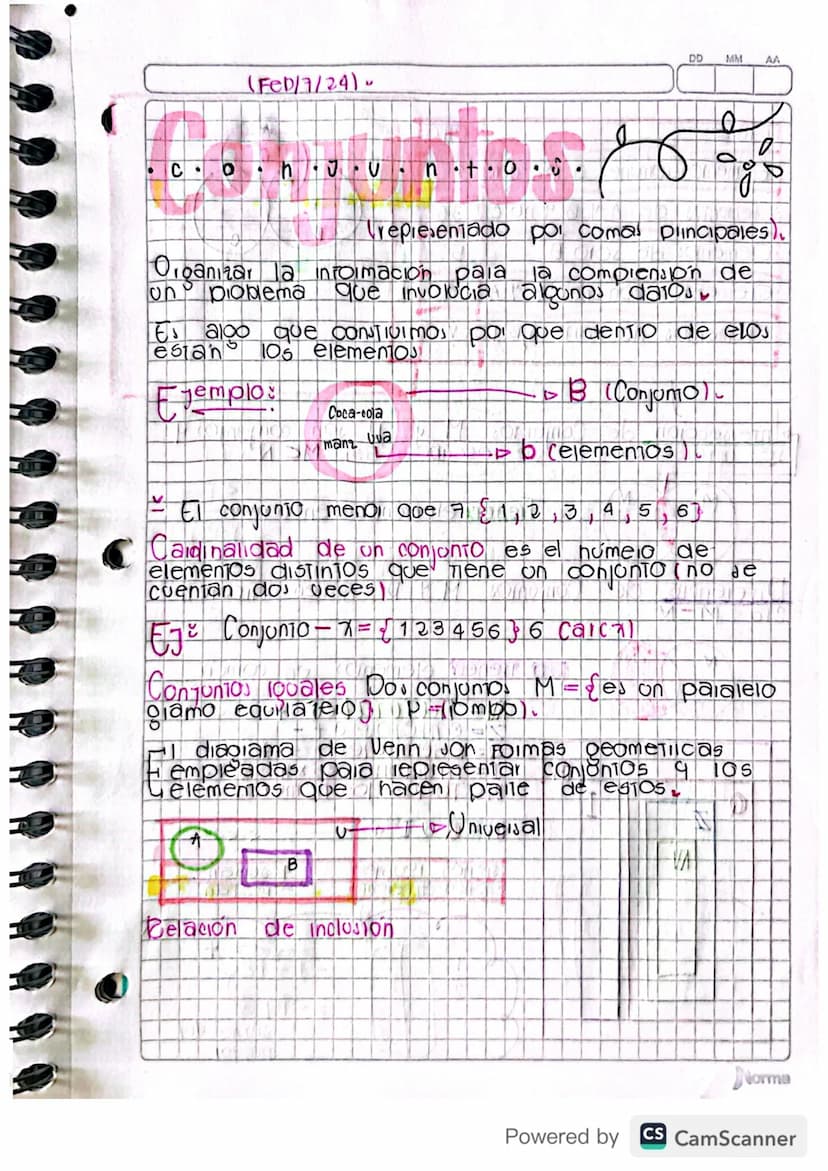 DD MM AA
(FeD/7/24).
Conjuntos
·c·o·n·J·U·n·t·O·s·
(representado por comas principales).
Organizar la informacion para la comprension de
un problema que involucra algunos datos.
Es algo que construimos por que dentro de elos
estan los elementos
Ejemplo:
B (Conjunto).
Coca-cola
manz uva
b (elementos).
El conjunto menor que 7 {1,2,3,4,5,6}
Cardinalidad de un conjunto es el número de
elementos distintos que tiene un conjunto (no se
cuentan dos veces)
Ej: Conjunto-x={123456} 6 Car(x)
Conjuntos iguales Dos conjuntos M={es un paralelo
gramo equilatero}
El diagrama de Venn son formas geometricas
empleadas para representar conjuntos y los
elementos que hacen parte de estos.
A
B
U
Universal
Relación de inclusión
Norma
Powered by CS CamScanner